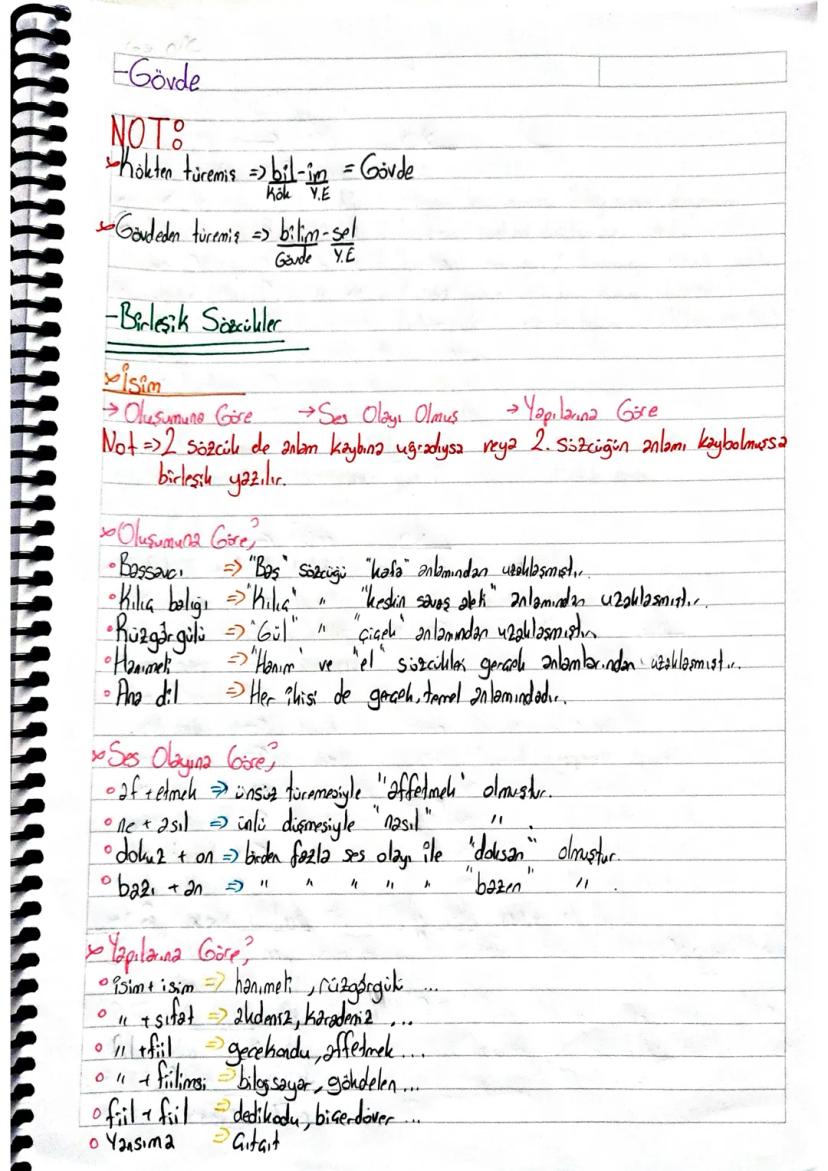 -Gövde
NOT:
Kökten türemiş => bil-im = Gövde
Kök Y.E
Gövdeden türemiş => bilim-sel
Gövde Y.E
-Birleşik Sözcükler
İsim
→ Oluşumuna Göre → Ses Olayı Olmuş → Yapılarına Göre
Not => 2 sözcük de anlam kaybına uğradıysa veya 2. sözcüğün anlamı kaybolmuşsa
birleşik yazılır.
Oluşumuna Göre;
• Başsavcı => "Baş" sözcüğü "kafa" anlamından uzaklaşmıştır.
• Kılıç balığı => "Kılıç" " "keskin savaş aleti" anlamından uzaklaşmıştır.
• Rüzgârgülü => "Gül" " "çiçek" anlamından uzaklaşmıştır.
• Hanımeli => "Hanım" ve "el" sözcükleri gerçek anlamlarından uzaklaşmıştır.
• Ana dil => Her ikisi de gerçek, temel anlamındadır.
Ses Olayına Göre;
• af + etmek => ünsüz türemesiyle "affetmek" olmuştur.
• ne + asıl => ünlü düşmesiyle "nasıl" " .
• dokuz + on => birden fazla ses olayı ile "doksan" olmuştur.
• bazı + an => " " " " " "bazen" " .
Yapılarına Göre;
• isim + isim => hanımeli, rüzgârgülü ...
• " + sıfat => akdeniz, karadeniz ...
• " + fiil => gecekondu, affetmek ...
• " + fiilimsi => bilgisayar, gökdelen ...
• fiil + fiil => dedikodu, biçerdöver ...
• Yansıma => Çıtçıt